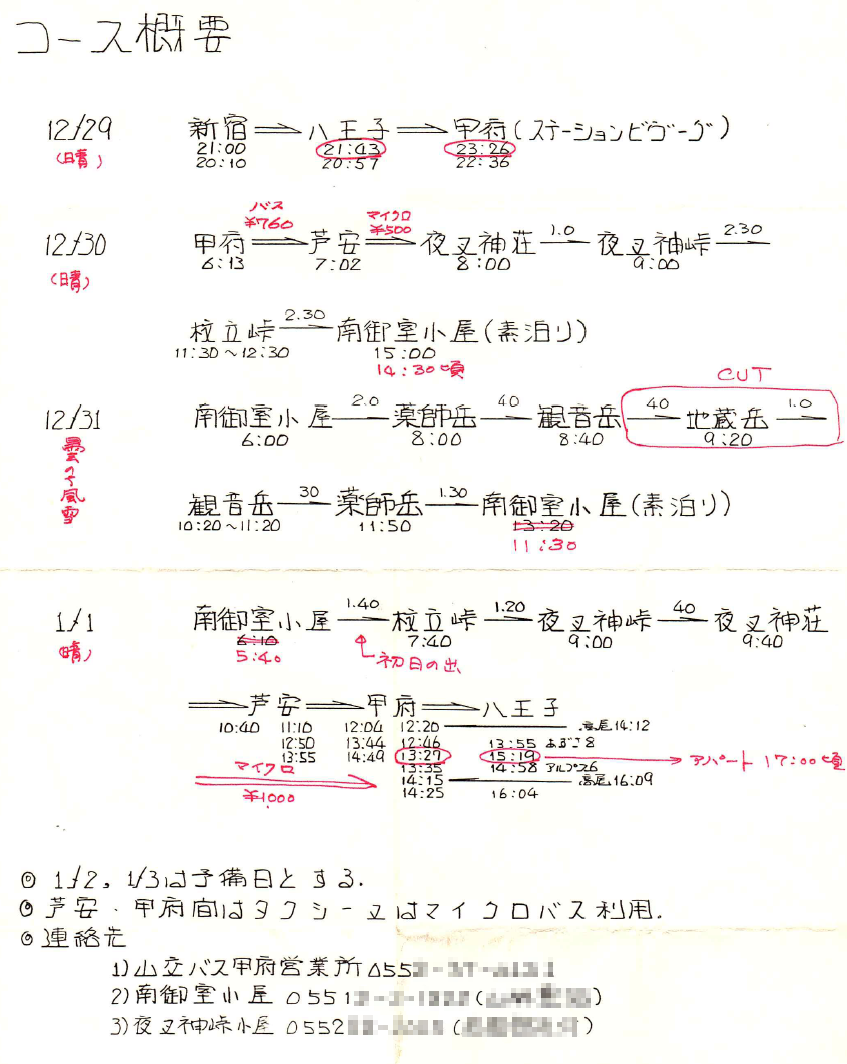 コース概要
12/29 新宿 八王子 甲府(ステーションビヴーグ)
(晴) 21:00 21:43 23:26
20:10 20:57 22:36
バス ¥760 マイクロ ¥500
12/30 甲府 芦安 夜叉神荘 1.0 夜叉神峠 2.30
(晴) 6:13 7:02 8:00 9:00
杖立峠 2.30 南御室小屋(素泊り)
11:30~12:30 15:00
14:30頃
CUT
12/31 南御室小屋 2.0 薬師岳 40 観音岳 40 地蔵岳 1.0
6:00 8:00 8:40 9:20
曇のち風雪
観音岳 30 薬師岳 1.30 南御室小屋(素泊り)
10:20~11:20 11:50 13:20
11:30
1/1 南御室小屋 1.40 杖立峠 1.20 夜叉神峠 40 夜叉神荘
(晴) 6:10 7:40 9:00 9:40
5:40 初日の出
芦安 甲府 八王子
10:40 11:10 12:04 12:20 高尾14:12
12:50 13:44 12:46 13:55 あずさ8
13:55 14:49 13:27 15:19 アパート 17:00頃
マイクロ 13:35 14:58 アルプス6
14:15 高尾16:09
¥1000 14:25 16:04
◎ 1/2, 1/3は予備日とする.
◎ 芦安・甲府間はタクシー又はマイクロバス利用.
◎ 連絡先
1)山交バス甲府営業所 055
2)南御室小屋 0551
3)夜叉神峠小屋 0552